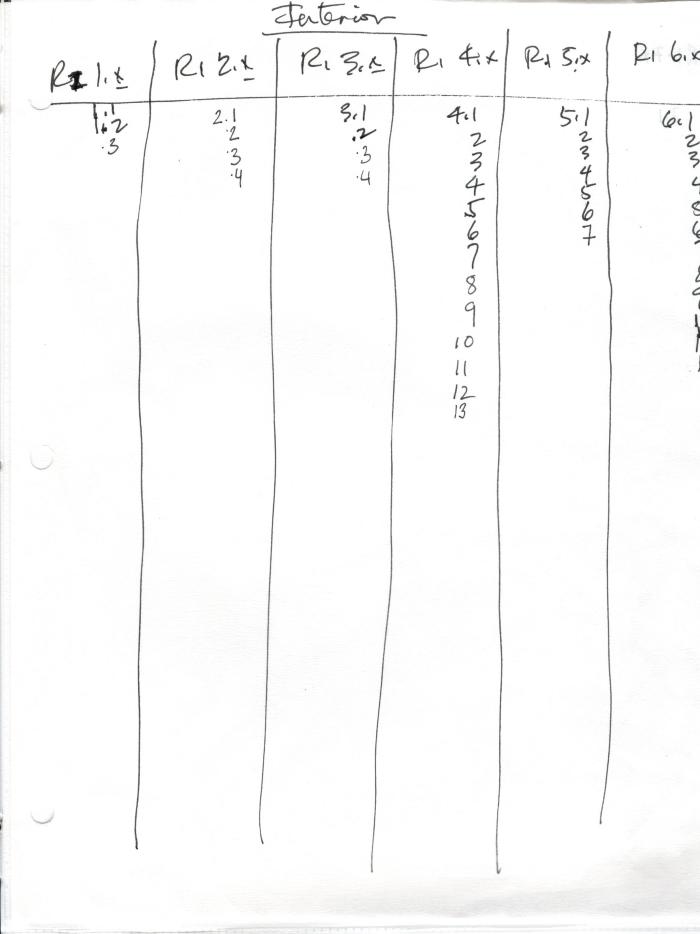 Interior
R1 1.x R1 2.x R1 3.x R1 4.x R1 5.x R1 6.x
1.1 2.1 3.1 4.1 5.1 6.1
1.2 .2 .2 2 2 2
.3 .3 .3 3 3 3
.4 .4 4 4 4
5 5
6 6
7 7
8
9
10
11
12
13